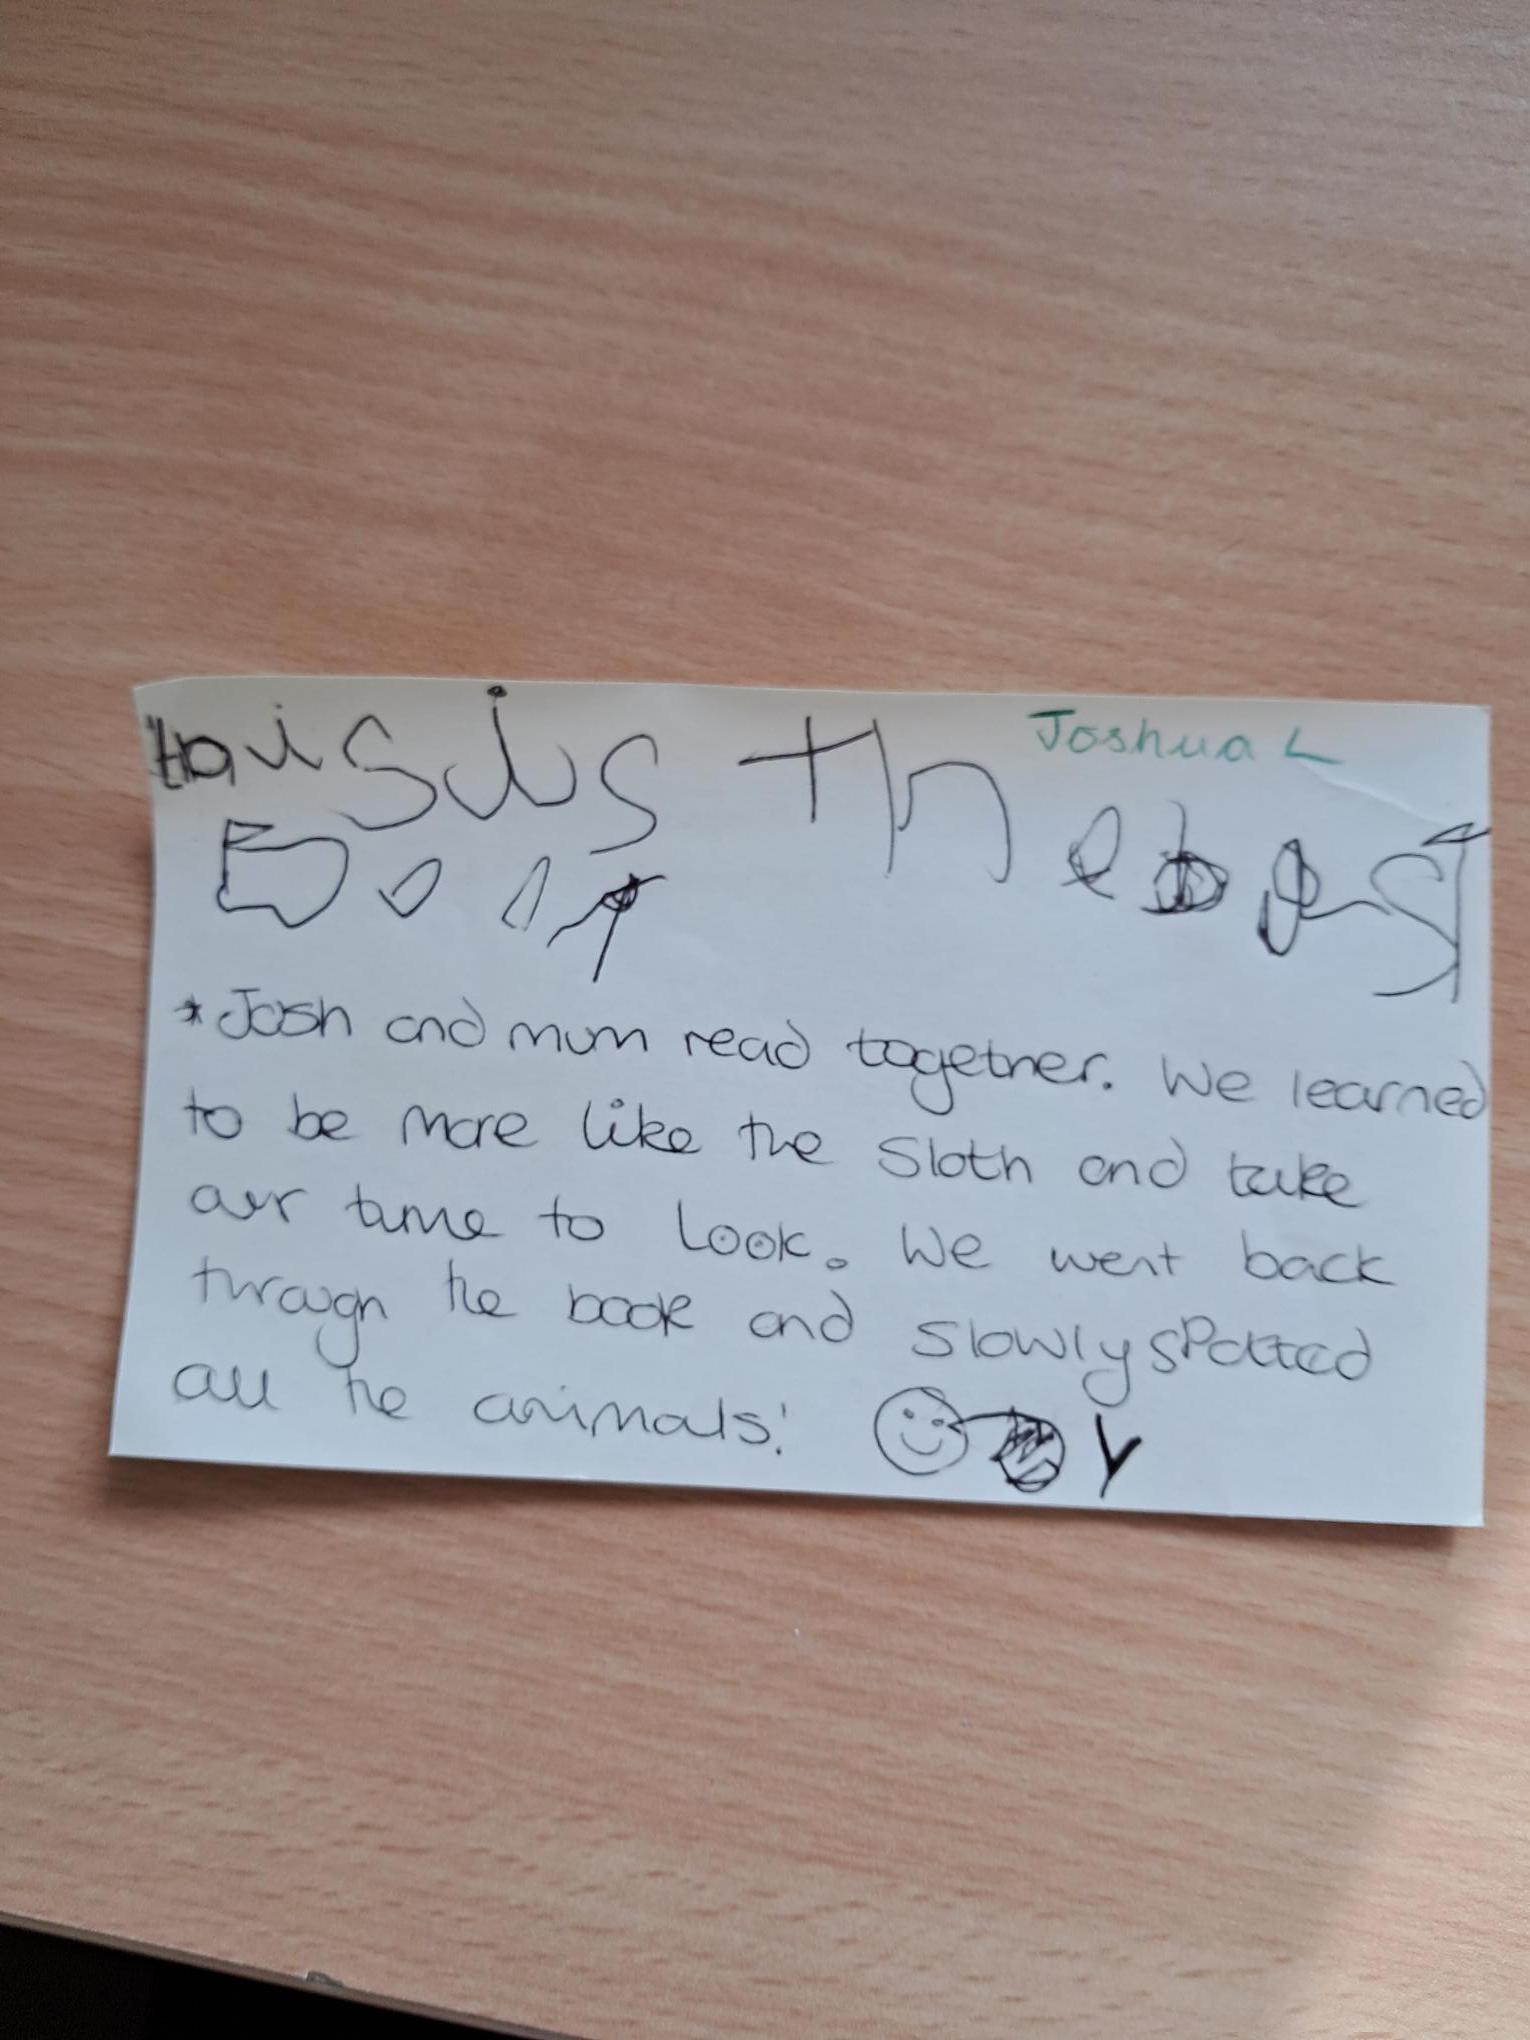 Joshua L
this is the best
Book
* Josh and mum read together. We learned
to be more like the sloth and take
our time to Look. We went back
through the book and slowly spotted
all the animals!
Y